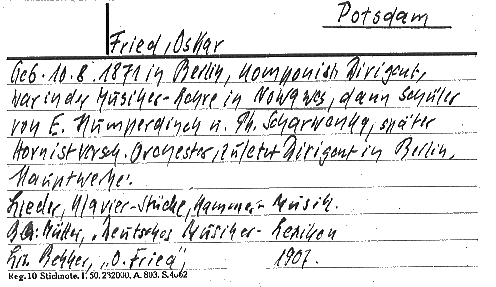 Potsdam
Fried, Oskar
Geb. 10.8.1871 in Berlin, Komponist, Dirigent,
war in der Musiker-Lehre in Nowawes, dann Schüler
von E. Humperdinck u. Ph. Scharwenka, später
Hornist versch. Orchester, zuletzt Dirigent in Berlin,
Hauptwerke:
Lieder, Klavier-Stücke, Kammer-Musik.
Müller, "Deutsches Musiker-Lexikon
Bekker, "O. Fried", 1907.
Reg. 10 Stichnote. I. 50. 252000. A. 803. S. 4062